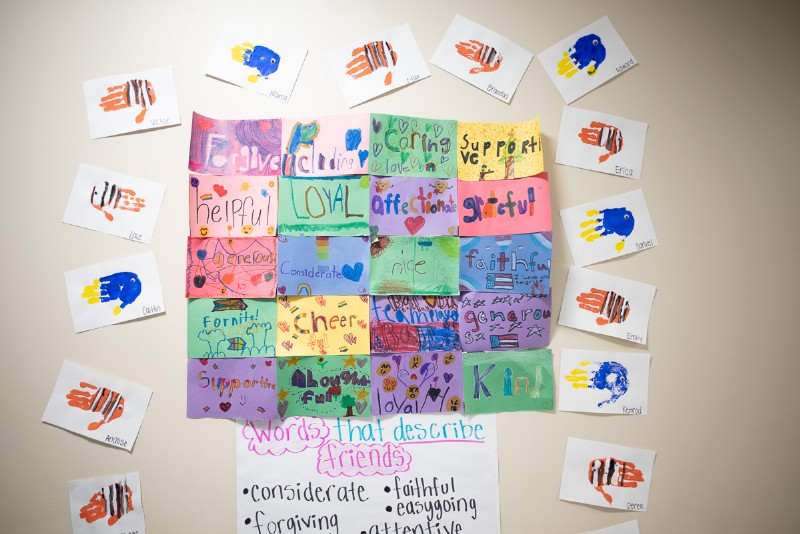 Max
Brandon
Edward
Victor
Forgive
including
Caring
love
Supporti
ve
Erica
helpful
LOYAL
affectionate
grateful
Luz
Daniel
Generous
Considerate
nice
faithful
Caitlin
Emily
Fornite!
Cheer
generous
Supportive
thoughtful
loyal
Kind
Konrad
Words that describe
friends
Annalise
• considerate • faithful
• easygoing
• forgiving • attentive
Derek